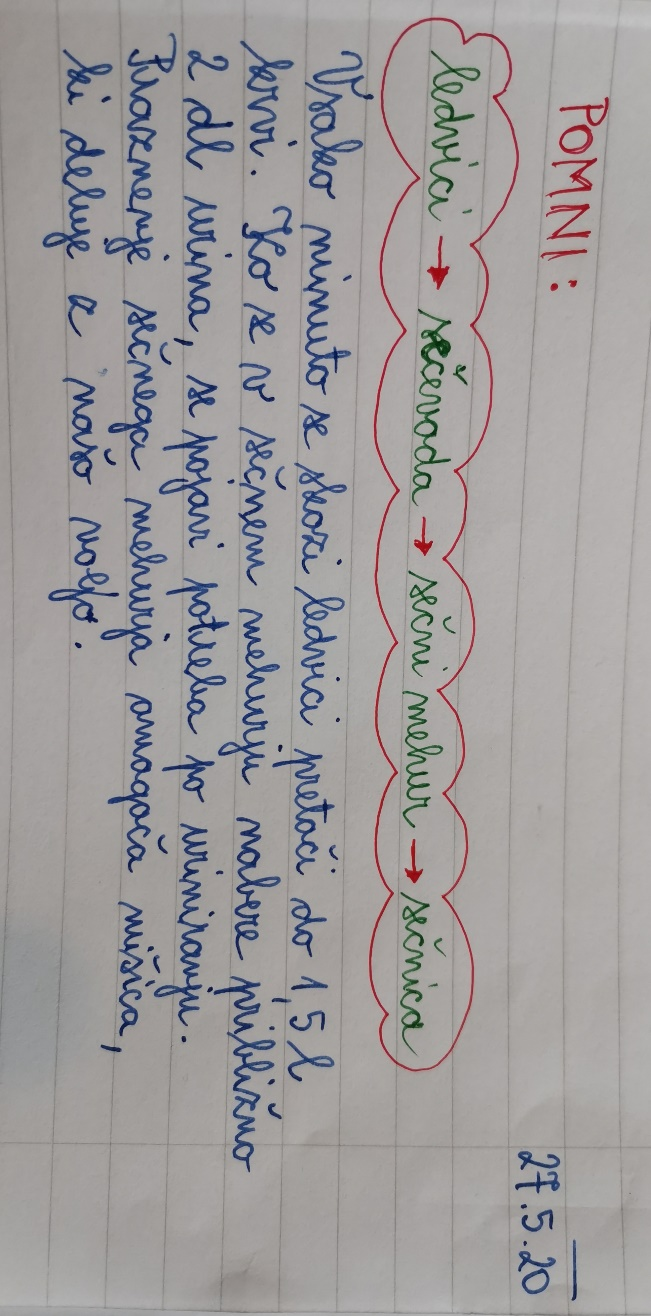 POMNI:
27.5.20
ledvici → sečevoda → sečni mehur → sečnica
Vsako minuto se skozi ledvici pretoči do 1,5 l
krvi. Ko se v sečnem mehurju nabere približno
2 dl urina, se pojavi potreba po uriniranju.
Praznenje sečnega mehurja omogoča mišica,
ki deluje z našo voljo.